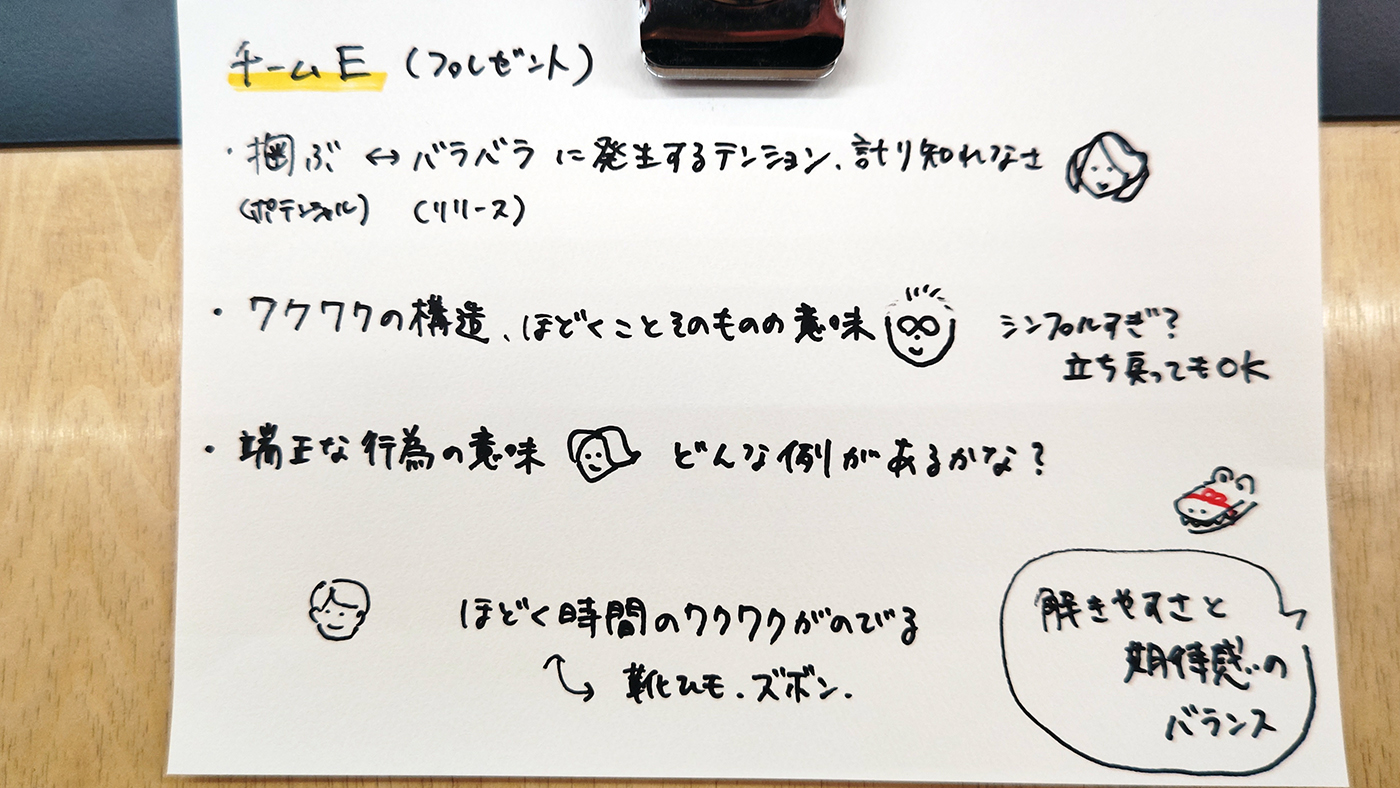 チームE (プレゼント)
・掴ぶ ↔ バラバラ に発生するテンション、計り知れなさ
(ポテンシャル) (リリース)
・ワクワクの構造、ほどくことそのものの意味 シンプルすぎ?
立ち戻ってもOK
・端正な行為の意味 どんな例があるかな?
ほどく時間のワクワクがのびる
靴ひも.ズボン.
解きやすさと
期待感の
バランス